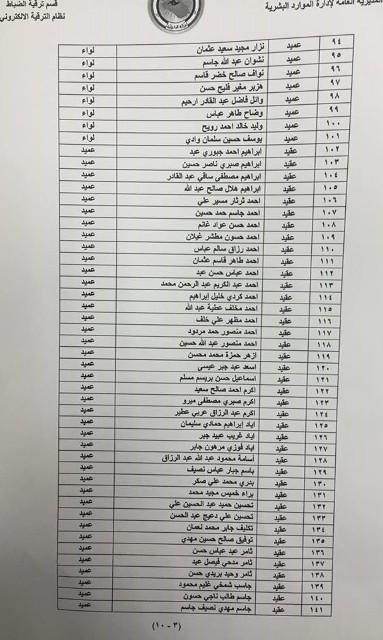 المديرية العامة لإدارة الموارد البشرية
قسم ترقية الضباط
نظام الترقية الالكتروني
٩٤ عميد نزار مجيد سعيد عثمان لواء
٩٥ عميد نشوان عبد الله جاسم لواء
٩٦ عميد نواف صالح خضر قاسم لواء
٩٧ عميد هزبر مغير فليح حسن لواء
٩٨ عميد وائل فاضل عبد القادر ارحيم لواء
٩٩ عميد وضاح طاهر عباس لواء
١٠٠ عميد وليد خالد احمد رويح لواء
١٠١ عميد يوسف حسين سلمان وادي لواء
١٠٢ عقيد ابراهيم احمد جبوري عبد عميد
١٠٣ عقيد ابراهيم صبري ناصر حسين عميد
١٠٤ عقيد ابراهيم مصطفى ساقي عبد القادر عميد
١٠٥ عقيد ابراهيم هلال صالح عبد الله عميد
١٠٦ عقيد احمد ثرثار مسير علي عميد
١٠٧ عقيد احمد جاسم حمد حسين عميد
١٠٨ عقيد احمد حسن عواد غانم عميد
١٠٩ عقيد احمد حسون مطشر غيلان عميد
١١٠ عقيد احمد رزاق سالم عباس عميد
١١١ عقيد احمد طاهر قاسم عثمان عميد
١١٢ عقيد احمد عباس حسن عبد عميد
١١٣ عقيد احمد عبد الكريم عبد الرحمن محمد عميد
١١٤ عقيد احمد كردي خليل إبراهيم عميد
١١٥ عقيد احمد مخلف عطية عبد الله عميد
١١٦ عقيد احمد مظهر علي خلف عميد
١١٧ عقيد احمد منصور حمد مردود عميد
١١٨ عقيد احمد منصور عبد الله حسين عميد
١١٩ عقيد ازهر حمزة محمد محسن عميد
١٢٠ عقيد اسعد عبد جبر عيسى عميد
١٢١ عقيد اسماعيل حسن بريسم مسلم عميد
١٢٢ عقيد اكرم احمد صالح سعيد عميد
١٢٣ عقيد اكرم صبري مصطفى ميرو عميد
١٢٤ عقيد اكرم عبد الرزاق عربي عطير عميد
١٢٥ عقيد اياد إبراهيم حمادي سليمان عميد
١٢٦ عقيد اياد غريب عبيد جبر عميد
١٢٧ عقيد اياد فوزي مرهون جابر عميد
١٢٨ عقيد أسامة محمود عبد الله عبد الرزاق عميد
١٢٩ عقيد باسم جبار عباس نصيف عميد
١٣٠ عقيد بدري محمد علي صكر عميد
١٣١ عقيد براء خميس مجيد محمد عميد
١٣٢ عقيد تحسين حميد عبد الحسين علي عميد
١٣٣ عقيد تحسين علي دعيج عبد الحسن عميد
١٣٤ عقيد تكليف جابر محمد نعمان عميد
١٣٥ عقيد توفيق صالح حسين مهدي عميد
١٣٦ عقيد ثامر عبد عباس حسن عميد
١٣٧ عقيد ثامر مدحي فيصل عبد عميد
١٣٨ عقيد ثامر وحيد بريدي حسن عميد
١٣٩ عقيد جاسب شمخي غليم محمود عميد
١٤٠ عقيد جاسم طالب ناجي حسون عميد
١٤١ عقيد جاسم مهدي نصيف جاسم عميد
(٣ - ١٠)